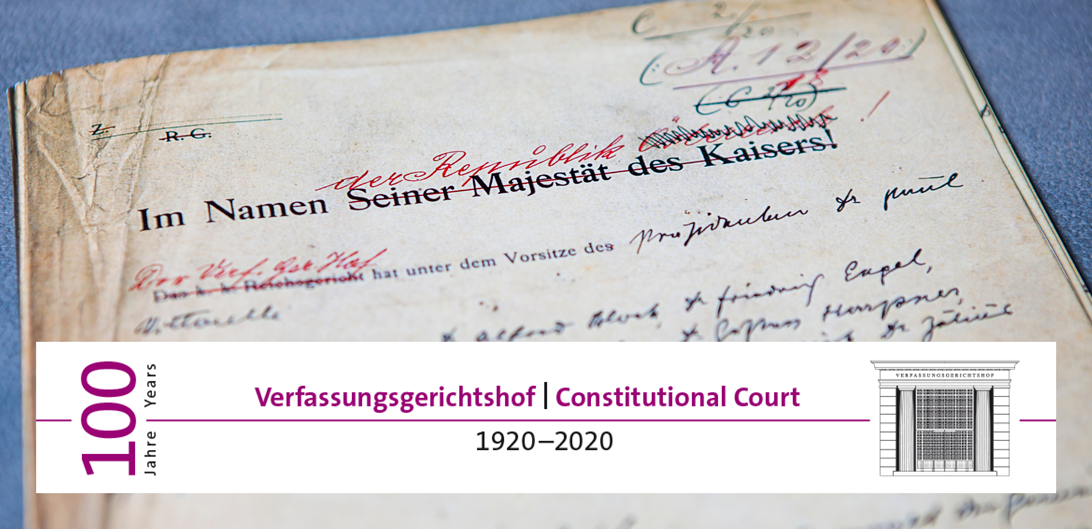 C 2/20
(A. 12/20)
Z.
R. G.
der Republik
Im Namen Seiner Majestät des Kaisers!
Der Verf. Ger Hof
Das k. k. Reichsgericht hat unter dem Vorsitze des Präsidenten Dr Paul
Vittorelli
Dr Friedrich Engel,
100
Jahre Years
Verfassungsgerichtshof | Constitutional Court
1920–2020
VERFASSUNGSGERICHTSHOF